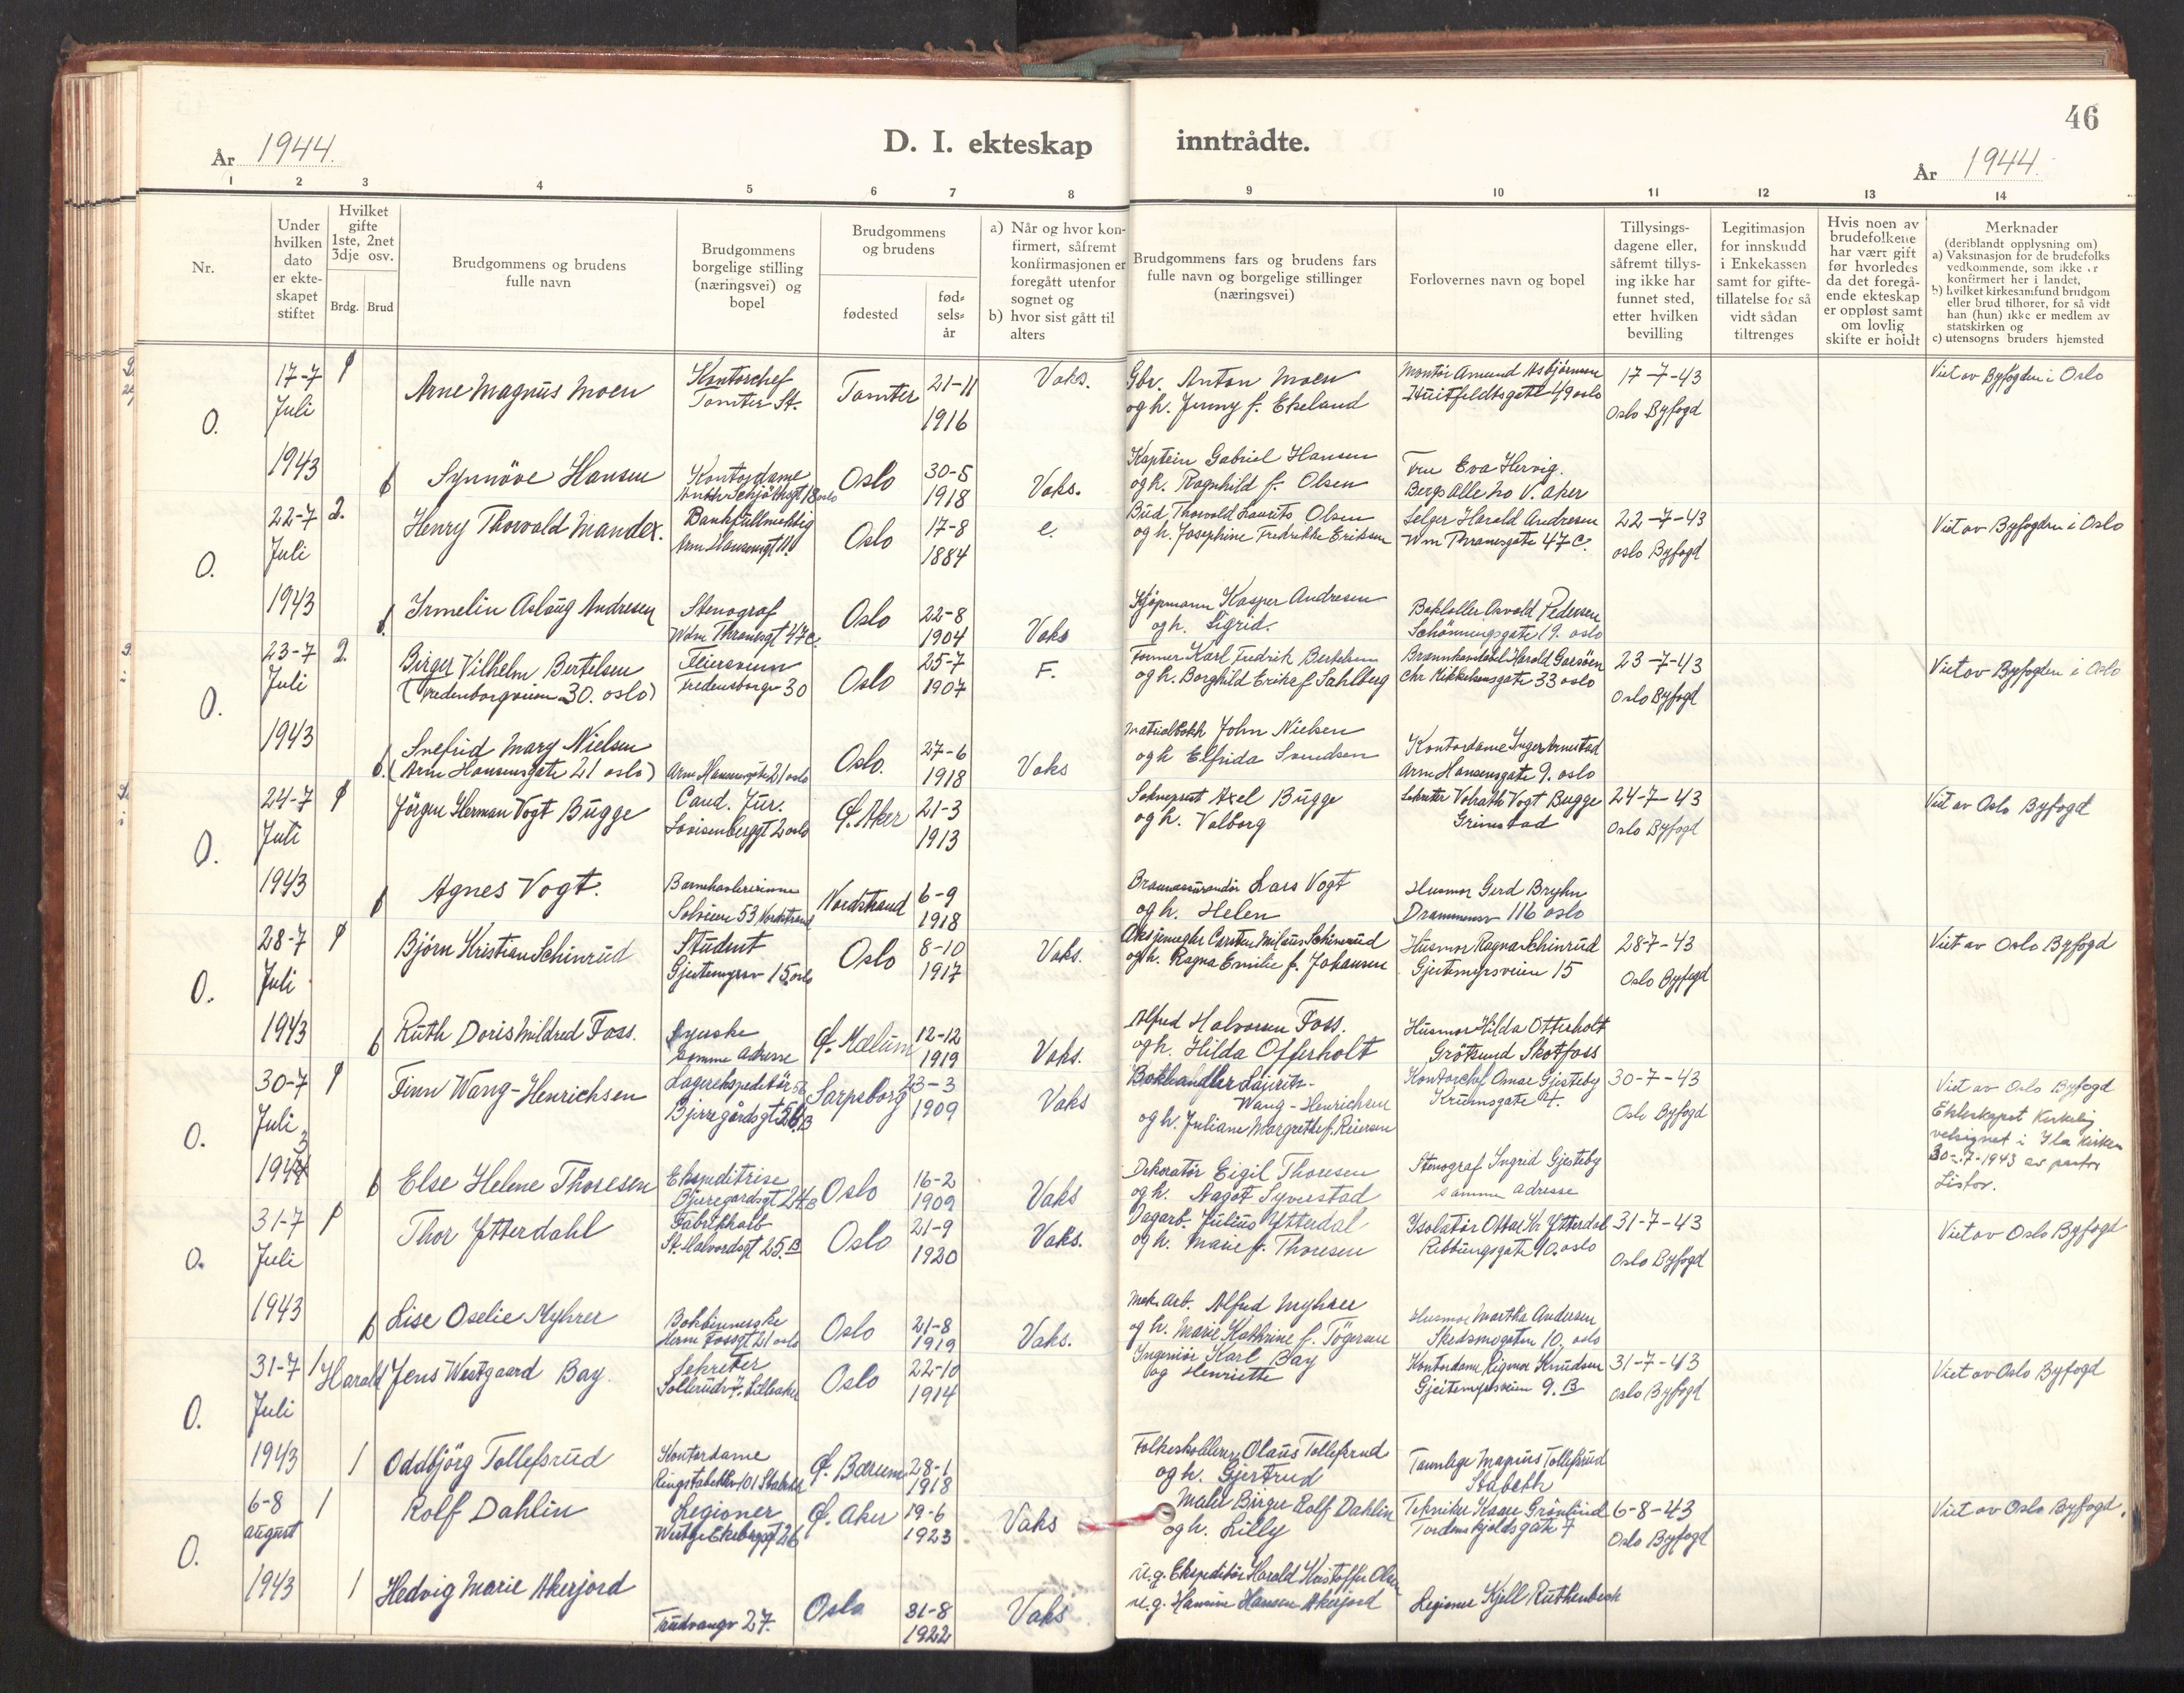 46
År 1944.
D. I. ekteskap inntrådte.
År 1944.
1 2 3 4 5 6 7 8 9 10 11 12 13 14
Nr.
Under hvilken dato er ekte-skapet stiftet
Hvilket gifte 1ste, 2net 3dje osv.
Brdg. Brud
Brudgommens og brudens fulle navn
Brudgommens borgelige stilling (næringsvei) og bopel
Brudgommens og brudens
fødested
fød-sels-år
a) Når og hvor kon-firmert, såfremt konfirmasjonen er foregått utenfor sognet og
b) hvor sist gått til alters
Brudgommens fars og brudens fars fulle navn og borgelige stillinger (næringsvei)
Forlovernes navn og bopel
Tillysings-dagene eller, såfremt tillys-ing ikke har funnet sted, etter hvilken bevilling
Legitimasjon for innskudd i Enkekassen samt for gifte-tillatelse for så vidt sådan tiltrenges
Hvis noen av brudefolkene har vært gift før hvorledes da det foregå-ende ekteskap er oppløst samt om lovlig skifte er holdt
Merknader
(deriblandt opplysning om)
a) Vaksinasjon for de brudefolks vedkommende, som ikke er konfirmert her i landet,
b) hvilket kirkesamfund brudgom eller brud tilhører, for så vidt han (hun) ikke er medlem av statskirken og
c) utensogns bruders hjemsted
O. 17-7 Juli 1943
1 Arne Magnus Moen
Kontorchef
Tomter St.
Tomter
21-11
1916
Vaks.
Gbr. Anton Moen
og h. Jenny f. Ekeland
Montör Amund Asbjørnsen
Huitfeldtsgate 49 oslo
17-7-43
Oslo Byfogd
Viet av Byfogden i Oslo
Synnöve Hansen
Kontordame
Oslo
30-5
1918
Vaks.
Kaptein Gabriel Hansen
og h. Ragnhild f. Olsen
Fru Eva Hervig.
Bergs Alle V. Aker
O. 22-7 Juli 1943
2. Henry Thorvald Mander.
Bankfullmektig
Oslo
17-8
1884
e.
Bud Thorvald Laurits Olsen
og h. Josephine Fredrikke Eriksen
Selger Harald Andresen
Wm Thranesgate 47 C.
22-7-43
oslo Byfogd
Viet av Byfogden i Oslo
Irmelin Aslaug Andresen
Stenograf
Wilm Thranesgt 47 C.
Oslo
22-8
1904
Vaks
Kjöpmann Kasper Andresen
og h. Sigrid.
Osvald Pedersen
Schönningsgate 19. oslo
O. 23-7 Juli 1943
2 Birger Vilhelm Bertelsen
(Fredenborgveien 30. oslo)
Feiersvenn
Fredensborgv 30
Oslo
25-7
1907
F.
Former Karl Fredrik Bertelsen
og h. Borghild Erika f. Sahlberg
Brannkonstabel Harald
33 oslo
23-7-43
Oslo Byfogd
Viet av Byfogden i Oslo
Snefrid Mary Nielsen
(Arne Hansensgate 21 oslo)
Arne Hansensgate 21 oslo
Oslo.
27-6
1918
Vaks
John Nielsen
og h Elfrida Svendsen
Kontordame Inger
Arne Hansensgate 9. oslo
O. 24-7 Juli 1943
1 Jörgen Herman Vogt Bugge
Cand. Jur.
Lovisenberggt 2 oslo
Ø. Aker
21-3
1913
Sokneprest Axel Bugge
og h. Valborg
Sekretær Volrath Vogt Bugge
Grimstad
24-7-43
Oslo Byfogd
Viet av Oslo Byfogd
Agnes Vogt.
Solveien 53 Nordstrand
Nordstrand
6-9
1918
Lars Vogt
og h. Helen
Husmor Gerd Bryhn
Drammensv 116 oslo
O. 28-7 Juli 1943
1 Bjørn Kristian Schinrud
Student
Gjeitemyrsv 15. oslo
Oslo
8-10
1917
Vaks.
Aksjemegler Carsten Schinrud
og h. Ragna Emilie f. Johansen
Husmor Ragna Schinrud
Gjeitemyrsveien 15
28-7-43
Oslo Byfogd
Viet av Oslo Byfogd
Ruth Doris Mildred Foss.
samme adresse
Ø. Mælum
12-12
1919
Vaks.
Alfred Halvorsen Foss.
og h. Hilda Offerholt
Husmor Hilda Otterholt
Grötsund Skotfoss
O. 30-7 Juli 1943
1 Finn Wang-Henrichsen
Lagerekspeditör
Sarpsborg
23-3
1909
Vaks
Bokhandler Lauritz
Wang-Henrichsen
og h. Juliane Margrethe f. Reiersen
Kontorchef Omar Gjesteby
30-7-43
Oslo Byfogd
Viet av Oslo Byfogd
Ekteskapet kirkelig
velsignet i Ila kirken
30-7-1943 av pastor
Listor.
Else Helene Thoresen
Ekspeditrise
Bjerregardsgt 24 B
Oslo
16-2
1909
Vaks
Dekoratör Eigil Thoresen
og h. Aagot Syverstad
Stenograf Ingrid Gjesteby
samme adresse
O. 31-7 Juli 1943
1 Thor Ytterdahl
Fabrikkarb
St. Halvordsgt 25. B
Oslo
21-9
1920
Vaks.
Julius Ytterdal
og h. Marie f. Thoresen
Isolatör Ytterdal
Ribbungsgate 10. oslo
31-7-43
Oslo Byfogd
Viet av Oslo Byfogd
Lise Oselie Myhrer
Bokbinnerske
Herm Fossgt 21 oslo
Oslo
21-8
1919
Vaks.
Mek. Arb. Alfred Myhrer
og h. Marie Kathrine f. Tögersen
Husmor Martha Andersen
Skedsmogaten 10. oslo
O. 31-7 Juli 1943
1 Harald Jens Westgaard Bay.
Sekretær
Sollerudv 7. Lilleaker
Oslo
22-10
1914
Ingeniör Karl Bay
og Henriette
Kontordame Rigmor Knudsen
Gjeitemyrsveien 9. B
31-7-43
Oslo Byfogd
Viet av Oslo Byfogd
1 Oddbjörg Tollefsrud
Kontordame
Ringstabekkv 101 Stabekk
Ø. Bærum
28-1
1918
Folkeskollærer Olaus Tollefsrud
og h. Gjertrud
Tannlege Magnus Tollefsrud
Stabekk
O. 6-8 august 1943
1 Rolf Dahlin
Legioner
Ø. Aker
19-6
1923
Vaks
Maler Birger Rolf Dahlin
og h. Lilly
Tekniker Kaare Grönlund
Tordenskjoldsgate 7
6-8-43
Oslo Byfogd
Viet av Oslo Byfogd.
1 Hedvig Marie Akerjord
Trudvangv 27.
Oslo
31-8
1922
Vaks
u.g. Ekspeditör Harald Kristoffer Olsen
u.g. Hansine Hansen Akerjord
Legioner Kjell Ruthenbeck